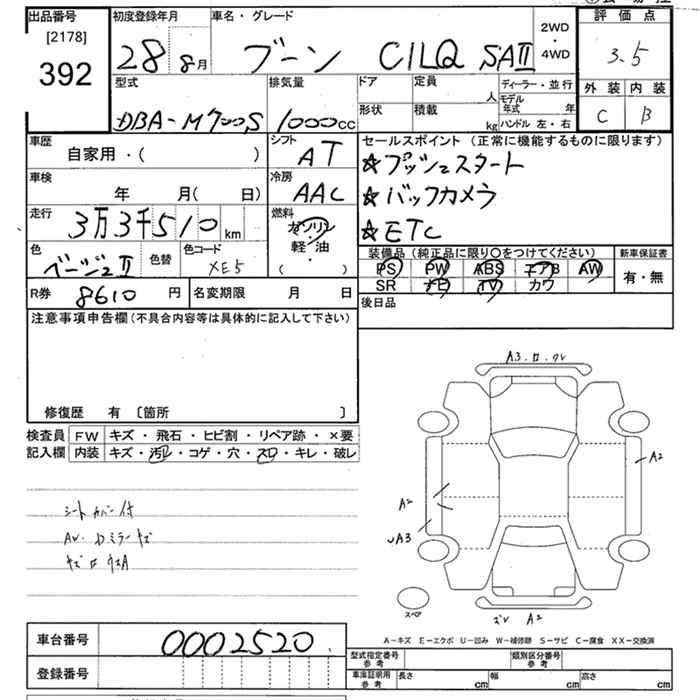 出品番号
[2178]
392
初度登録年月
28 8月
車名・グレード
ブーン CILQ SAⅡ
2WD
・
4WD
評価点
3.5
外装 内装
C B
型式
DBA-M700S
排気量
1000cc
ドア
定員
人
形状
積載
kg
ディーラー・並行
モデル年式 年
ハンドル 左・右
車歴
自家用・( )
シフト
AT
車検
年 月( 日)
冷房
AAC
走行
3万3千510 km
燃料
ガソリン
・
軽・油
( )
色
ベージュⅡ
色替
色コード
XE5
R券 8610 円
名変期限 月 日
セールスポイント (正常に機能するものに限ります)
★プッシュスタート
★バックカメラ
★ETC
装備品(純正品に限り〇をつけてください)
PS PW ABS エアB AW
SR ナビ TV カワ
新車保証書
有・無
後日品
注意事項申告欄(不具合内容等は具体的に記入して下さい)
修復歴 有 〔箇所 〕
検査員
記入欄
FW キズ・飛石・ヒビ割・リペア跡・×要
内装 キズ・汚レ・コゲ・穴・スレ・キレ・破レ
シートカバー付
A2
A2
A3
A2
スペア
A-キズ E-エクボ U-凹み W-補修跡 S-サビ C-腐食 XX-交換済
車台番号 0002520
登録番号
型式指定番号
参考
類別区分番号
参考
車庫証明用
参考
長さ cm
幅 cm
高さ cm